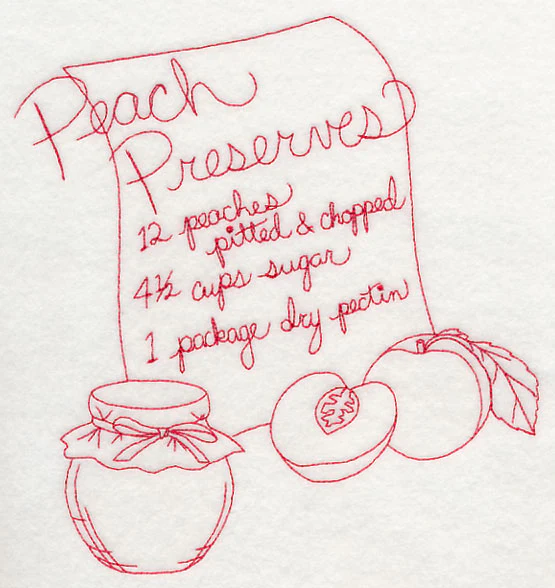 Peach
Preserves
12 peaches
pitted & chopped
4½ cups sugar
1 package dry pectin